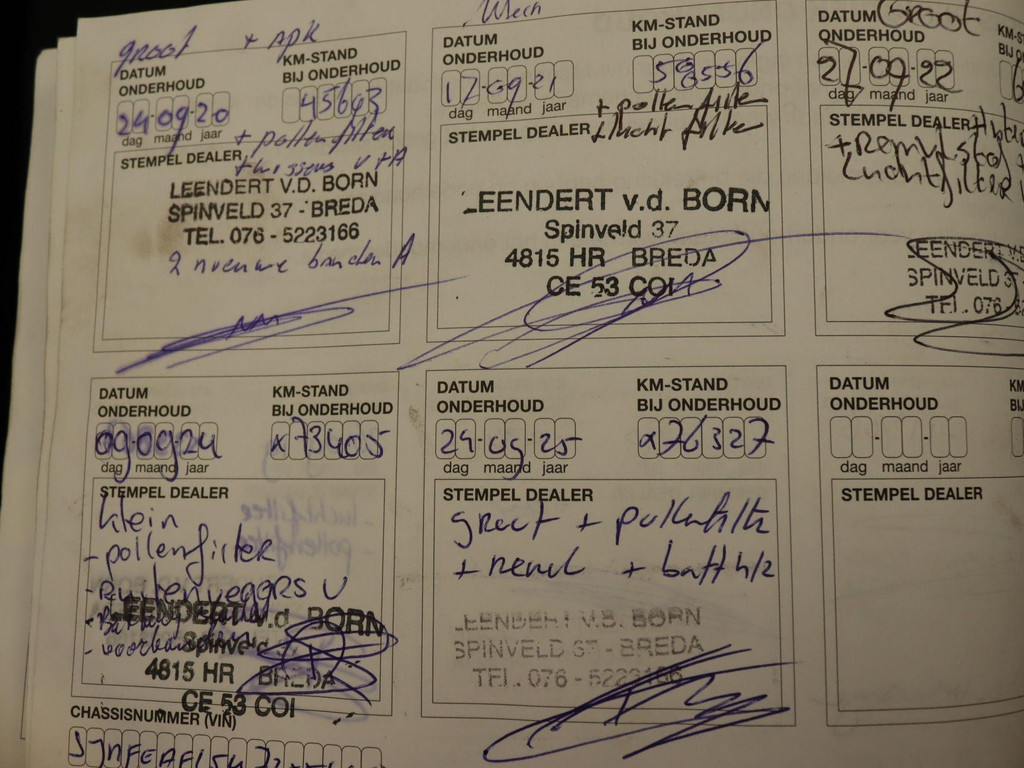 groot + apk
DATUM ONDERHOUD
KM-STAND BIJ ONDERHOUD
24-09-20
45643
dag maand jaar
+ pollenfilter
STEMPEL DEALER
+ wissers V+A
LEENDERT V.D. BORN
SPINVELD 37 - BREDA
TEL. 076 - 5223166
2 nieuwe banden A
DATUM ONDERHOUD
KM-STAND BIJ ONDERHOUD
17-09-21
58556
dag maand jaar
+ pollenfilter
STEMPEL DEALER
+ lucht filter
LEENDERT v.d. BORN
Spinveld 37
4815 HR BREDA
CE 53 COI
Groot
DATUM ONDERHOUD
27-09-22
dag maand jaar
STEMPEL DEALER
+ Remvloeistof
Luchtfilter
LEENDERT V.
SPINVELD 3
TEL. 076
DATUM ONDERHOUD
KM-STAND BIJ ONDERHOUD
09-09-24
x73405
dag maand jaar
STEMPEL DEALER
klein
- pollenfilter
- Ruitenwegers V
LEENDERT v.d. BORN
Spinveld
4815 HR BREDA
CE 53 COI
DATUM ONDERHOUD
KM-STAND BIJ ONDERHOUD
24-09-25
x76327
dag maand jaar
STEMPEL DEALER
groot + pollenfilte
+ remvl + batt h/z
LEENDERT V.D. BORN
SPINVELD 37 - BREDA
TEL. 076 - 5223166
DATUM ONDERHOUD
KM
BIJ
dag maand jaar
STEMPEL DEALER
CHASSISNUMMER (VIN)